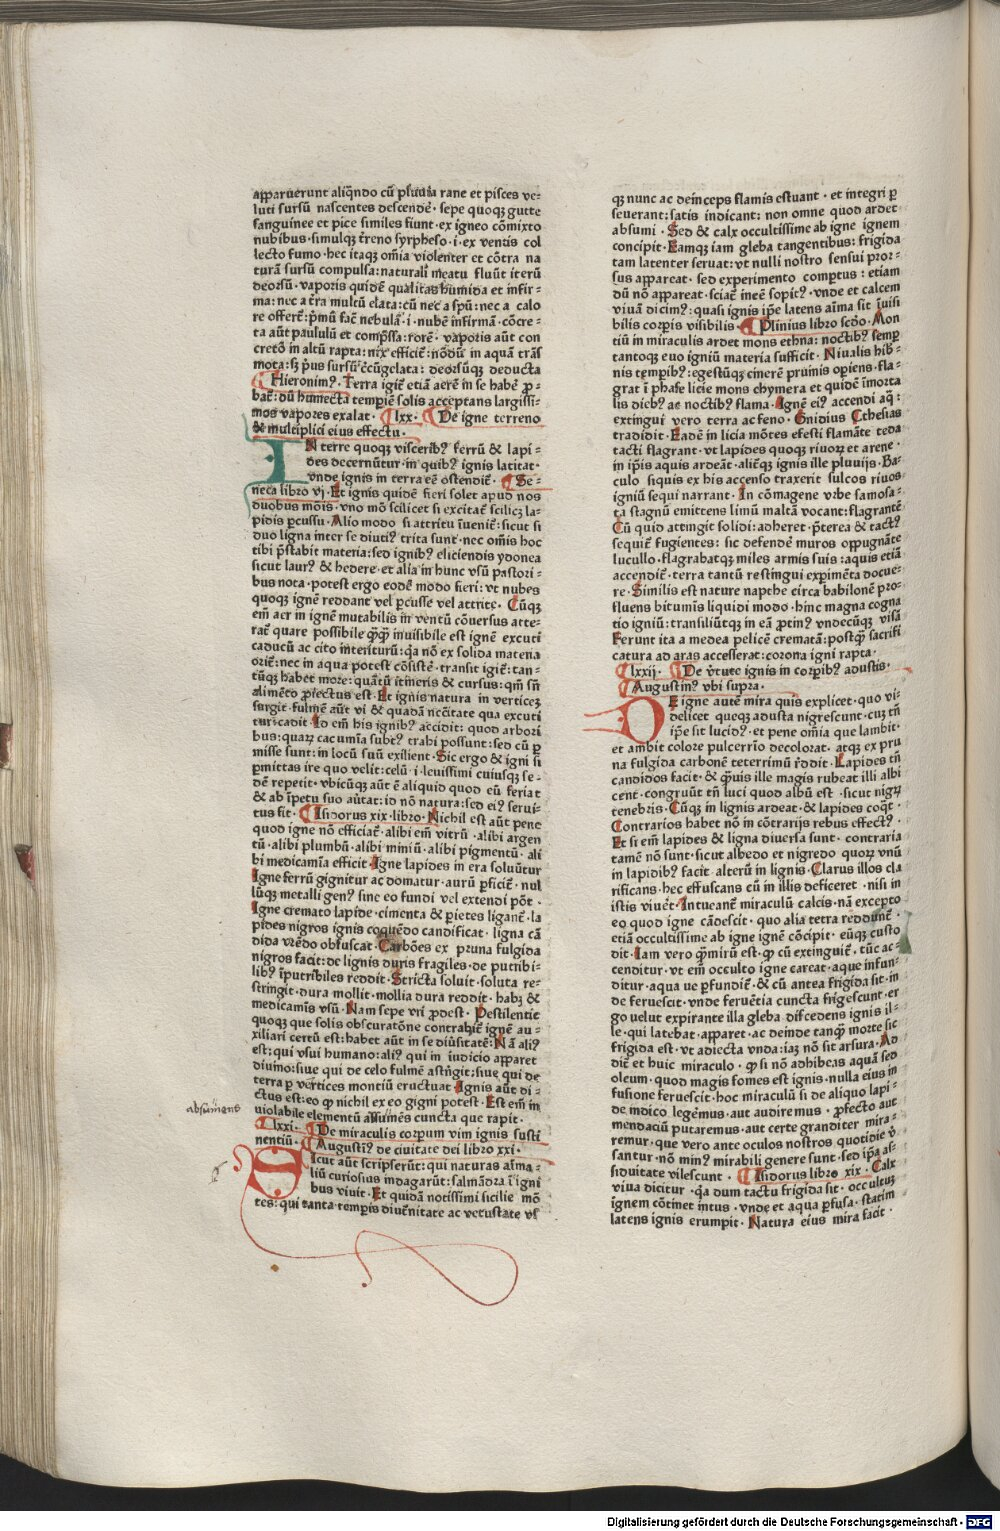 apparuerunt aliq̃ndo cũ pluuia rane et pisces ve-
luti sursũ nascentes descendẽ · sepe quoqꝫ gutte
sanguinee et pice similes fiunt · ex igneo cõmixto
nubibus · simulqꝫ t̃reno syrpheso · i · ex ventis col
lecto fumo · hec itaqꝫ om̃ia violenter et cõtra na
turã sursũ compulsa: naturali meatu fluũt iterũ
deorsũ · vaporis quidẽ qualitas humida et infir-
ma: nec a t̃ra multũ elata: cũ nec a sp̃u: nec a calo
re offert̃: p̃mũ fac̃ nebulã · i · nubẽ infirmã · cõcre-
ta aũt paululũ et comp̃ssa: rorẽ · vaporis aũt con
cretõ in altũ rapta: nix efficit̃: nõdũ in aquã trãs
mota: sꝫ p̃us sursũ cõgelata: deorsũqꝫ deducta
Hieronimꝰ · Terra igit̃ etiã aerẽ in se habẽ p̱-
bat̃: dũ humecta tempiẽ solis acceptans largissi-
mos vapores exalat · lxx · De igne terreno
& multiplici eius effectu ·
IN terre quoqꝫ visceribꝰ ferrũ & lapi-
des decernũtur · in quibꝰ ignis latitat ·
vnde ignis in terra eẽ ostendit̃ · Se-
neca libro vj · Et ignis quidẽ fieri solet apud nos
duobus mõis · vno mõ scilicet si excitat̃ scilicꝫ la-
pidis p̱cussu · Alio modo si attritu ĩuenit̃: sicut si
duo ligna inter se diutiꝰ trita sunt · nec om̃is hoc
tibi p̃stabit materia: sed ignibꝰ eliciendis ydonea
sicut laurꝰ & hedere · et alia in hunc vsũ pastori-
bus nota · potest ergo eodẽ modo fieri: vt nubes
quoqꝫ ignẽ reddant vel p̱cusse vel attrite · Cũqꝫ
em̃ aer in ignẽ mutabilis in ventũ cõuersus atte-
rat̃ quare possibile q̃q̃ inuisibile est ignẽ excuti
caducũ ac cito interiturũ: q̃a nõ ex solida materia
orit̃: nec in aqua potest cõsistẽ · transit igit̃: tan-
tũqꝫ habet more: quãtũ itineris & cursus: qm̃ sñ
alimẽto p̱iectus est · Et ignis natura in verticeꝫ
surgit · fulmẽ aũt vi & quadã nc̃citate qua excuti
tur: cadit · Id em̃ his ignibꝰ accidit: quod arbori
bus: quaꝝ cacumĩa subtꝰ trahi possunt: sed cũ p̱
misse sunt: in locũ suũ exilient · Sic ergo & igni si
p̱mittas ire quo velit: celũ · i · leuissimi cuiusqꝫ se-
dẽ repetit · vbicũqꝫ aũt ẽ aliquid quod eũ feriat
& ab ĩpetu suo au̇tat: id nõ natura: sed eiꝰ serui-
tus fit · Isidorus xix · libro · Nichil est aũt pene
quod igne nõ efficiat̃ · alibi em̃ vitrũ · alibi argen
tũ · alibi plumbũ · alibi miniũ · alibi pigmentũ · ali
bi medicamĩa efficit · Igne lapides in era soluũtur
Igne ferrũ gignitur ac domatur · aurũ p̱ficit̃ · nul
lũqꝫ metalli genꝰ sine eo fundi vel extendi põt ·
Igne cremato lapide · cimenta & p̱ietes ligant̃ · la
pides nigros ignis coquẽdo candificat · ligna cã
dida vrẽdo obfuscat · Carbões ex pruna fulgida
nigros facit: de lignis duris fragiles · de putribi-
libꝰ ĩputribiles reddit · Stricta soluit · soluta re-
stringit · dura mollit · mollia dura reddit · habꝫ &
medicamĩs vsũ · Nam sepe vri p̱dest · Pestilentie
quoqꝫ que solis obscuratõne contrahit̃ ignẽ au-
xiliari certũ est: habet aũt in se diũsitatẽ: Nã aliꝰ
est: qui vsui humano: aliꝰ qui in iudicio apparet
diuino: siue qui de celo fulmẽ astrigit: siue qui de
terra p̱ vertices montiũ eructuat · Ignis aũt di-
ctus est: eo ꝙ nichil ex eo gigni potest · Est em̃ in
uiolabile elementũ assumẽs cuncta que rapit ·
absumens
lxxi · De miraculis corpum vim ignis susti
nentiũ · Augustinꝰ de ciuitate dei libro xxi ·
Sicut aũt scripserũt: qui naturas aĩma-
liũ curiosius indagarũt: salmãdra ĩ igni
bus viuit · Et quidã notissimi sicilie mõ
tes: qui tanta temp̱is diut̃nitate ac vetustate vs
qꝫ nunc ac deinceps flamis estuant · et integri p̱
seuerant: satis indicant: non omne quod ardet
absumi · Sed & calx occultissime ab igne ignem
concipit · Eamqꝫ iam gleba tangentibus: frigida
tam latenter seruat: vt nulli nostro sensui pror-
sus appareat · sed experimento comptus: etiam
dũ nõ appareat · sciat̃ ineẽ sopitꝰ · vnde et calcem
viuã dicimꝰ: quasi ignis ip̃e latens aĩma sit ĩuisi
bilis corp̱is visibilis · Plinius libro scd̃o · Mon
tiũ in miraculis ardet mons ethna: noctibꝰ semp̱
tantoqꝫ euo igniũ materia sufficit · Niualis hib-
nis temp̱ibꝰ: egestũqꝫ cinerẽ pruinis op̱iens · fla-
grat ĩ phase licie mons chymera et quidẽ ĩmorta
lis diebꝰ ac noctibꝰ flama · Ignẽ eiꝰ accendi aq̃:
extingui vero terra ac feno · Gnidius Cthesias
tradidit · Eadẽ in licia mõtes efesti flamãte teda
tacti flagrant · vt lapides quoqꝫ riuoꝝ et arene ·
in ip̃is aquis ardeãt · aliẽqꝫ ignis ille pluuijs · Ba-
culo siquis ex his accenso traxerit sulcos riuos
igniũ sequi narrant · In cõmagene vrbe samosa-
ta stagnũ emittens limũ maltã vocant: flagrantẽ
Cũ quid attingit solidi: adheret · p̃terea & tactꝰ
sequit̃ fugientes: sic defendẽ muros oppugnãte
lucullo · flagrabatqꝫ miles armis suis: aquis etiã
accendit̃ · terra tantũ restingui exp̱imẽta docue-
re · Similis est nature napthe circa babilonẽ pro-
fluens bitumĩs liquidi modo · hinc magna cogna
tio igniũ: transiliũtqꝫ in eã p̱tinꝰ vndecũqꝫ visã
Ferunt ita a medea pelicẽ crematã: postq̃ sacrifi
catura ad aras accesserat: corona igni rapta ·
lxxij · De v̇tute ignis in corp̱ibꝰ adustis ·
Augustinꝰ vbi supra ·
DE igne autẽ mira quis explicet · quo vi-
delicet queqꝫ adusta nigrescunt · cuꝫ tñ
ip̃e sit lucidꝰ · et pene om̃ia que lambit ·
et ambit colore pulcerrĩo decolorat · atqꝫ ex pru
na fulgida carbonẽ teterrimũ r̃ddit · Lapides tñ
candidos facit · & q̃uis ille magis rubeat illi albi
cent · congruũt tñ luci quod albũ est · sicut nigꝝ
tenebris · Cũqꝫ in lignis ardeat · & lapides coq̃t ·
Contrarios habet nõ in cõtrarijs rebus effectꝰ ·
Et si em̃ lapides & ligna diuersa sunt · contraria
tamẽ nõ sunt · sicut albedo et nigredo quoꝝ vnũ
in lapidibꝰ facit alterũ in lignis · Clarus illos cla
rificans · hec effuscans cũ in illis deficeret · nisi in
istis viuẽt · Intueant̃ miraculũ calcis · nã excepto
eo quod igne cãdescit · quo alia tetra reddunt̃ ·
etiã occultissime ab igne ignẽ cõcipit · eũqꝫ custo
dit · Iam vero q̃mirũ est · ꝙ cũ extinguit̃ · tũc ac-
cenditur · vt em̃ occulto igne careat · aque infun-
ditur · aqua ve p̱fundit̃ · & cũ antea frigida sit · in
de feruescit · vnde feruẽtia cuncta frigescunt · er
go velut expirante illa gleba discedens ignis il-
le · qui latebat · apparet · ac deinde tanq̃ morte sic
frigida est · vt adiecta vnda: iaꝫ nõ sit arsura · Ad
dit̃ et huic miraculo · ꝙ si nõ adhibeas aquã sed
oleum · quod magis fomes est ignis · nulla eius in
fusione feruescit · hoc miraculũ si de aliquo lapi-
de indico legẽmus · aut audiremus · p̱fecto aut
mendaciũ putaremus · aut certe granditer mira-
remur · que vero ante oculos nostros quotidie v̇
santur · nõ minꝰ mirabili genere sunt · sed ip̃a as-
siduitate vilescunt · Isidorus libro xix · Calx
viua dicitur · q̃a dum tactu frigida sit · occultuꝫ
ignem cõtinet intus · vnde et aqua p̱fusa · statim
latens ignis erumpit · Natura eius mira facit ·
Digitalisierung gefördert durch die Deutsche Forschungsgemeinschaft - DFG